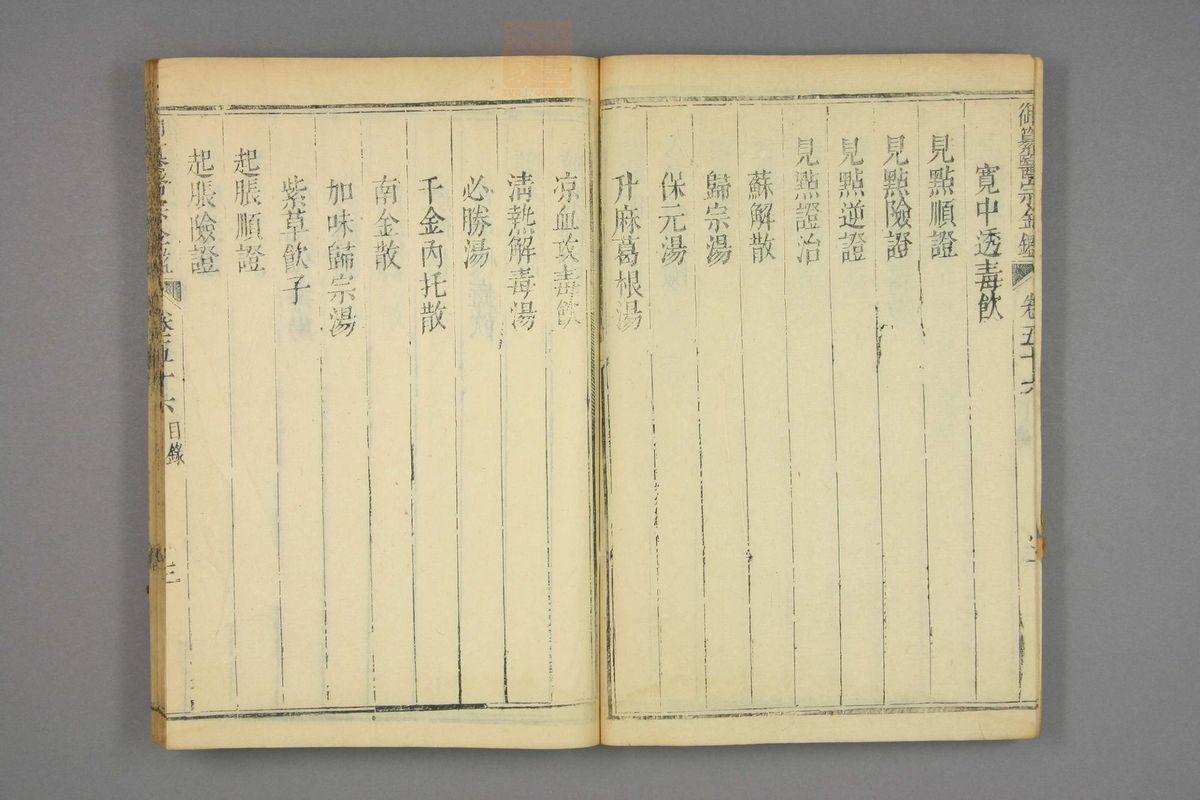 御纂醫宗金鑑 卷五十六
寬中透毒飮
見點順證
見點險證
見點逆證
見點證治
蘇解散
歸宗湯
保元湯
升麻葛根湯
凉血攻毒飮
淸熱解毒湯
必勝湯
千金內托散
南金散
加味歸宗湯
紫草飮子
起脹順證
起脹險證
卷五十六 目錄 三